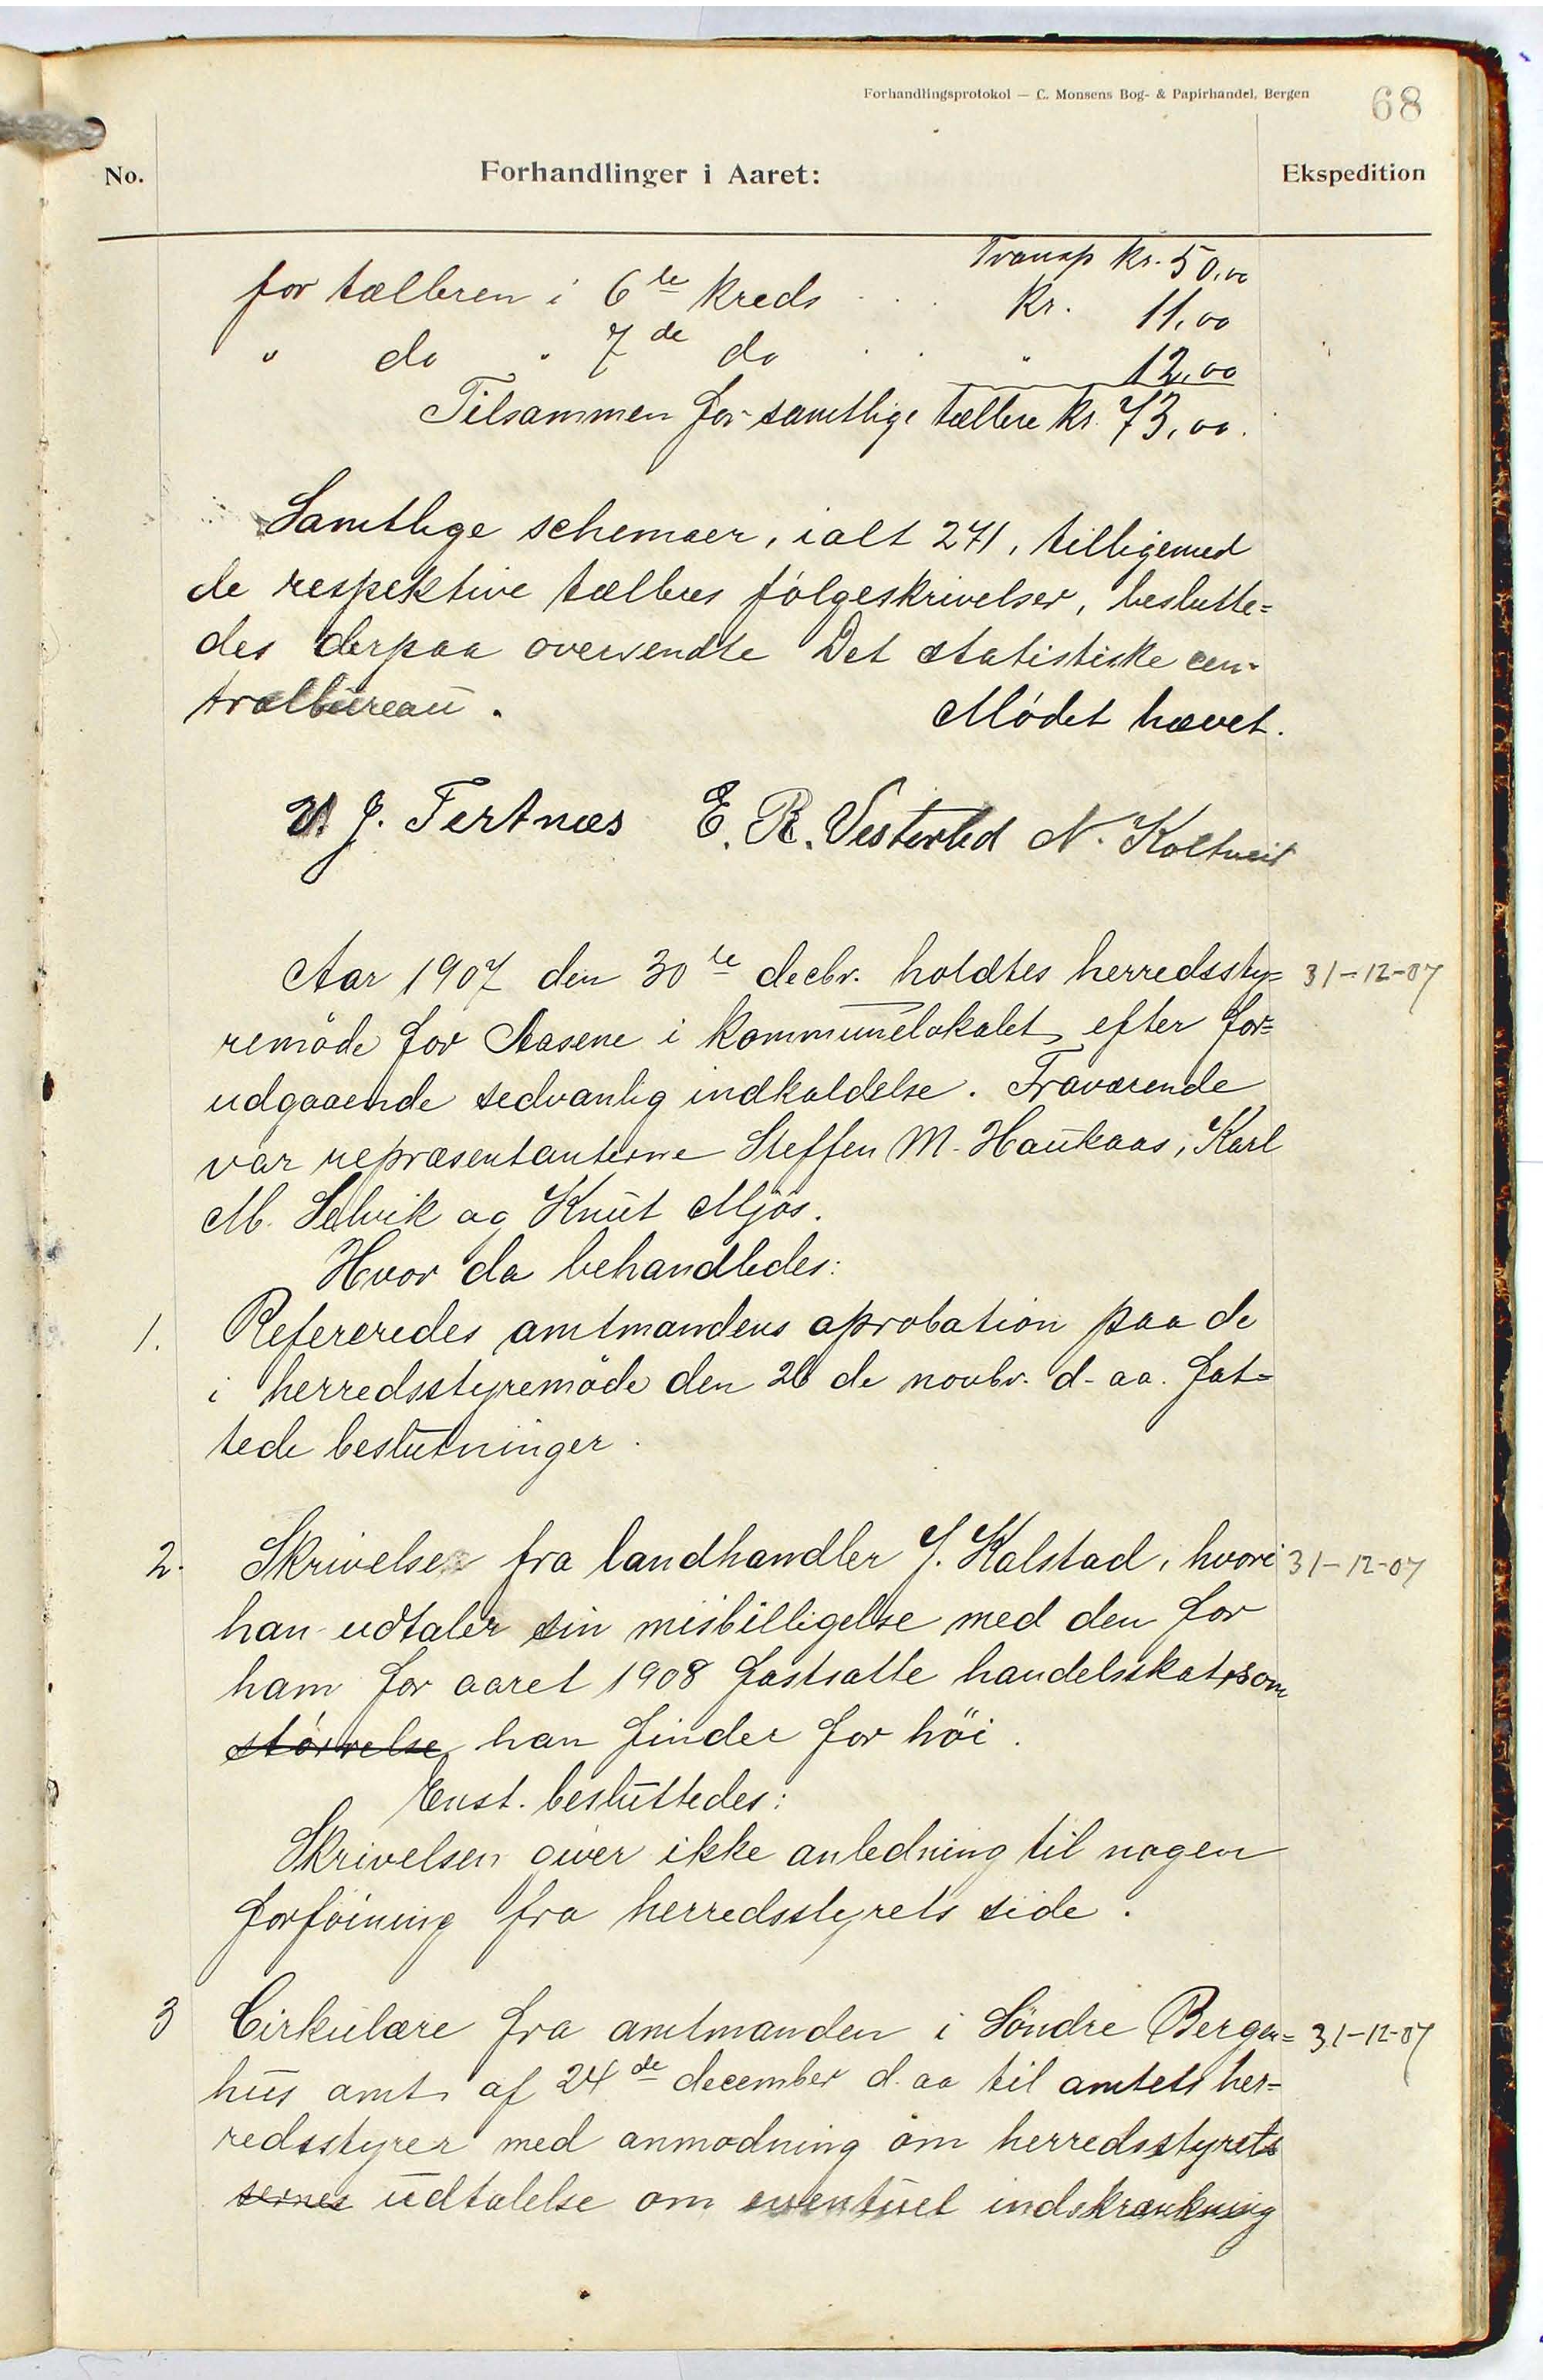 Forhandlingsprotokol — C. Monsens Bog- & Papirhandel, Bergen
68
No.
Forhandlinger i Aaret:
Ekspedition
Transp kr. 50,00
for tælleren i 6te kreds . . kr. 11,00
" do " 7de do . . " 12,00
Tilsammen for samtlige tællere kr. 73,00.
Samtlige schemaer, ialt 271, tilligemed
de respektive tælleres følgeskrivelser, beslutte=
des derpaa oversendte Det statistiske cen-
tralbureau.
Mødet hævet.
J. Tertnæs E. R. Vesterlid N. Koltveit
Aar 1907 den 30te decbr. holdtes herredssty=
31-12-07
remöde for Aasene i kommunelokalet efter for=
udgaaende sedvanlig indkaldelse. Fraværende
var repræsentanterne Steffen M. Haukaas, Karl
M. Selvik og Knut Mjös.
Hvor da behandledes:
1. Refereredes amtmandens aprobation paa de
i herredsstyremöde den 26 de novbr. d. aa. fat=
tede beslutninger.
2. Skrivelse fra landhandler J. Kalstad, hvori
31-12-07
han udtaler sin misbilligelse med den for
ham for aaret 1908 fastsatte handelsskat, som
störrelse han finder for höi.
Enst. besluttedes:
Skrivelsen giver ikke anledning til nogen
forföining fra herredsstyrets side.
3 Cirkulære fra amtmanden i Söndre Bergen=
31-12-07
hus amt af 24de december d. aa til amtets her=
redsstyrer med anmodning om herredsstyrets
sernes udtalelse om eventuel indskrænkning